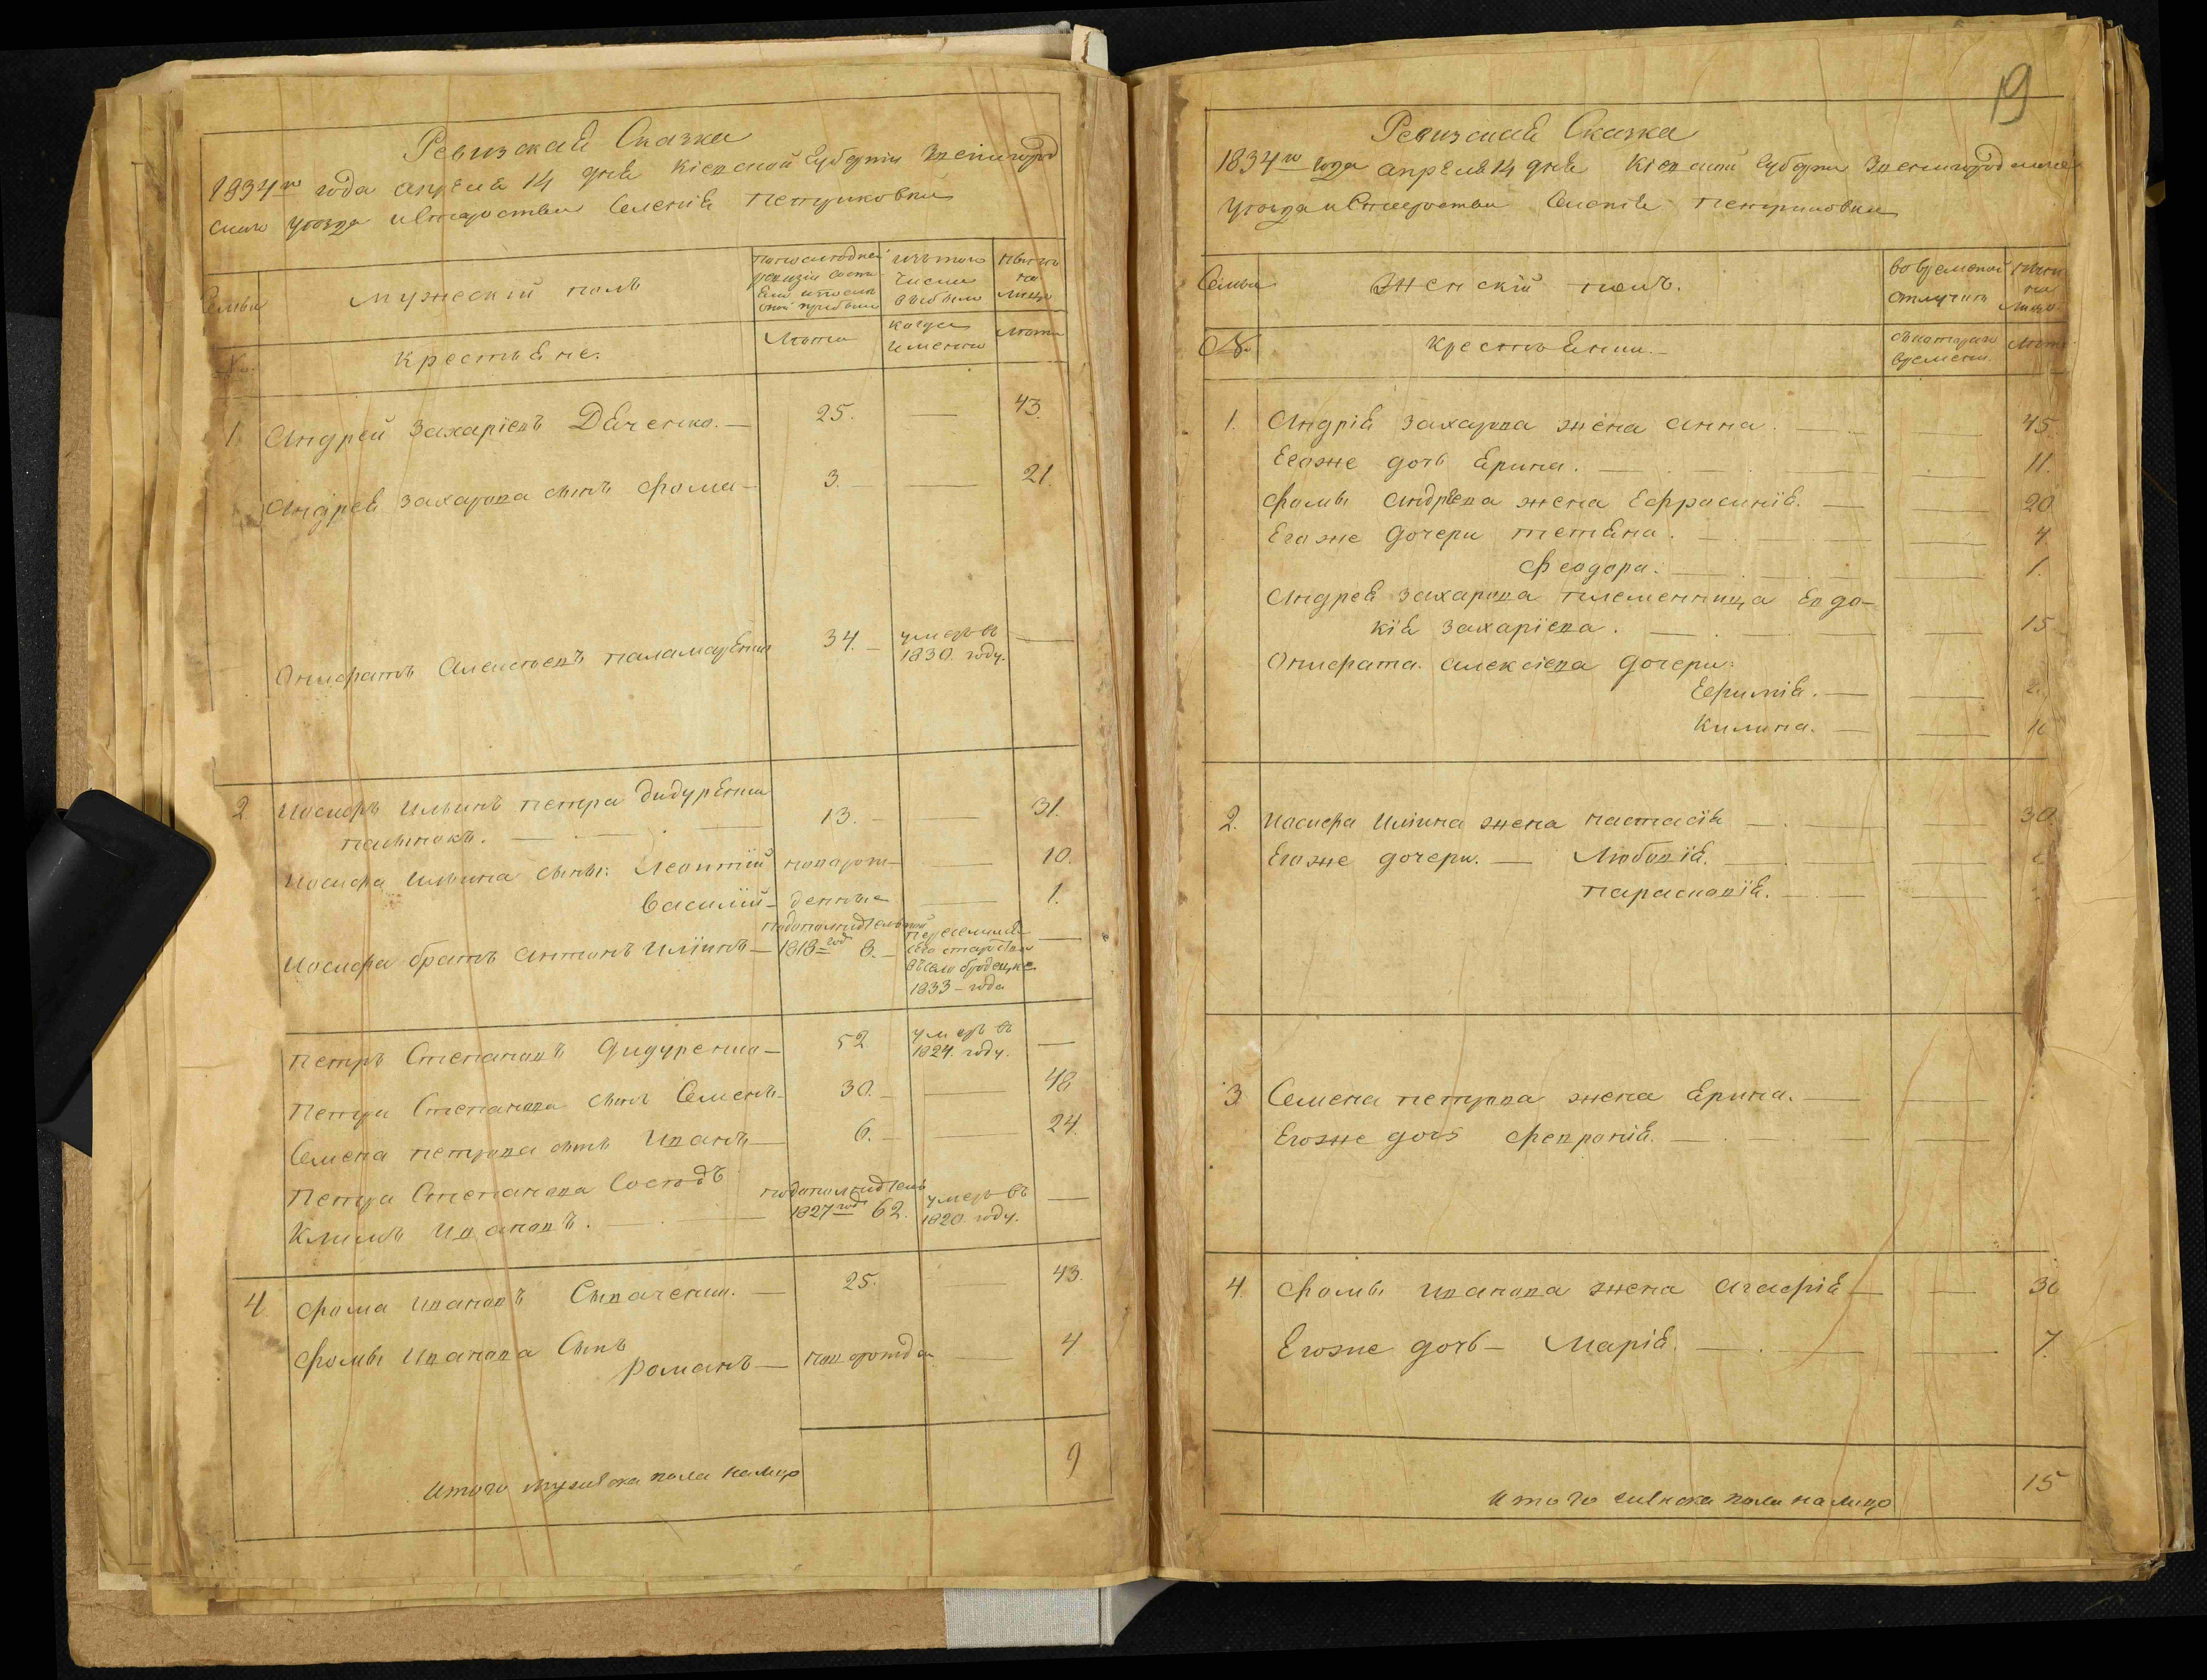 Ревизская Сказка
1834го года апреля 14 дня Кіевской Губерніи Звенигород
скаго уезда и Староства Селенія Петриковки
Семьи
Мужеский полъ
по последней ревизіи состояло и после оной прибыло
изъ того числа выбыло
ныне на лицо
№.
Крестьяне.
Лета
когда именно
Лета
1. Андрей Захаріевъ Дяченко. — 25. — 43.
Андрея Захарова сынъ Фома — 3. — 21.
Онифратъ Алексеевъ Паламаренко 34. — умеръ въ 1830. году. —
2 Иосифъ Ильинъ Петра Дидуренка
пасынокъ. — 13. — 31.
Иосифа Ильина сыны: Леонтій новорож — 10.
Василій — денные — 1.
Иосифа братъ Антонъ Иліинъ — 1818 год 8. — его староства въ село Бродецкое 1833 – года —
Петръ Степановъ Дидуренко — 52 умеръ въ 1824. году. —
Петра Степанова сынъ Семенъ — 30. — 48
Семена Петрова сынъ Иванъ — 6. — 24.
Петра Степанова Соседъ
Климъ Ивановъ. — 1827 год 62. умеръ въ 1820 году. —
4. Фома Ивановъ Сиваченко. — 25. — 43.
Фомы Иванова Сынъ
Романъ — новорожден — 4
Итого мужеска пола налицо 9
19
Ревизская Сказка
1834го года апреля 14 дня Кіевской Губерніи Звенигородскаго
уезда и Староства Селенія Петриковки
Семьи
Женскій полъ.
во временной отлучке
ныне на лицо
№.
Крестьянки. —
съ котораго времени.
Лета
1. Андрія Захарова жена Анна. — 45.
Егоже дочь Ерина. — 11.
Фомы Андреева жена Ефросинія. — 20
Егоже дочери Тетяна. — 4.
Феодора. — 1.
Андрея Захарова племенница Евдо-
кія Захаріева. — 15
Онифрата Алексіева дочери:
Ефимія. —
Килина. —
2. Иосифа Иліина жена Настасія — 30.
Егоже дочери. — Любовія. —
Парасковія. —
3 Семена Петрова жена Ерина. —
Егоже дочь Февронія. —
4. Фомы Иванова жена Агафія — 3
Егоже дочь — Марія. — 7.
Итого женска пола налицо 15